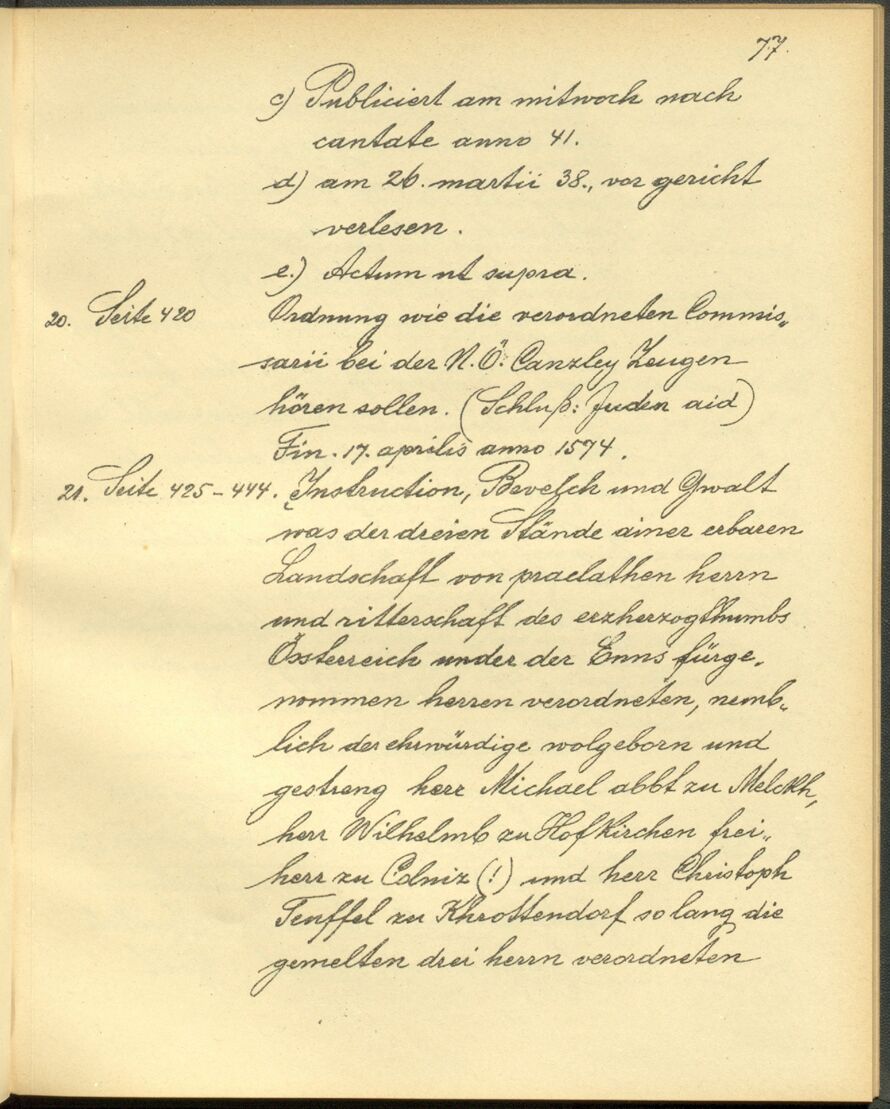 77.
c) Publiciert am mitwoch nach
cantate anno 41.
d) am 26. martii 38., vor gericht
verlesen.
e.) Actum ut supra.
20. Seite 420 Ordnung wie die verordneten Commis„
sarii bei der N.Ö. Canzley Zeugen
hören sollen. (Schluß: Juden aid)
Fin. 17. aprilis anno 1574.
21. Seite 425-444. Instruction, Bevelch und Gwalt
was der dreien Stände ainer erbaren
Landschaft von praelathen herrn
und ritterschaft des erzherzogthumbs
Össterreich under der Enns fürge„
nommen herren verordneten, nemb„
lich der ehrwürdige wolgeborn und
gestreng herr Michael abbt zu Melckh,
herr Wilhelmb zu Hofkirchen frei„
herr zu Colniz (!) und herr Christoph
Teuffel zu Khrottendorf so lang die
gemelten drei herrn verordneten